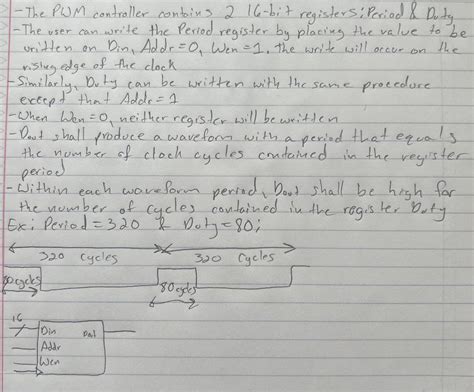 -The PWM controller contains 2 16-bit registers: Period & Duty
-The user can write the Period register by placing the value to be
written on Din, Addr=0, Wen=1, the write will occur on the
rising edge of the clock
-Similarly, Duty can be written with the same procedure
except that Addr=1
-When Wen=0, neither register will be written
-Dout shall produce a waveform with a period that equals
the number of clock cycles contained in the register
period
-Within each waveform period, Dout shall be high for
the number of cycles contained in the register Duty
Ex: Period=320 & Duty=80;
320 cycles 320 cycles
80 cycles 80 cycles
16
Din Dout
Addr
Wen